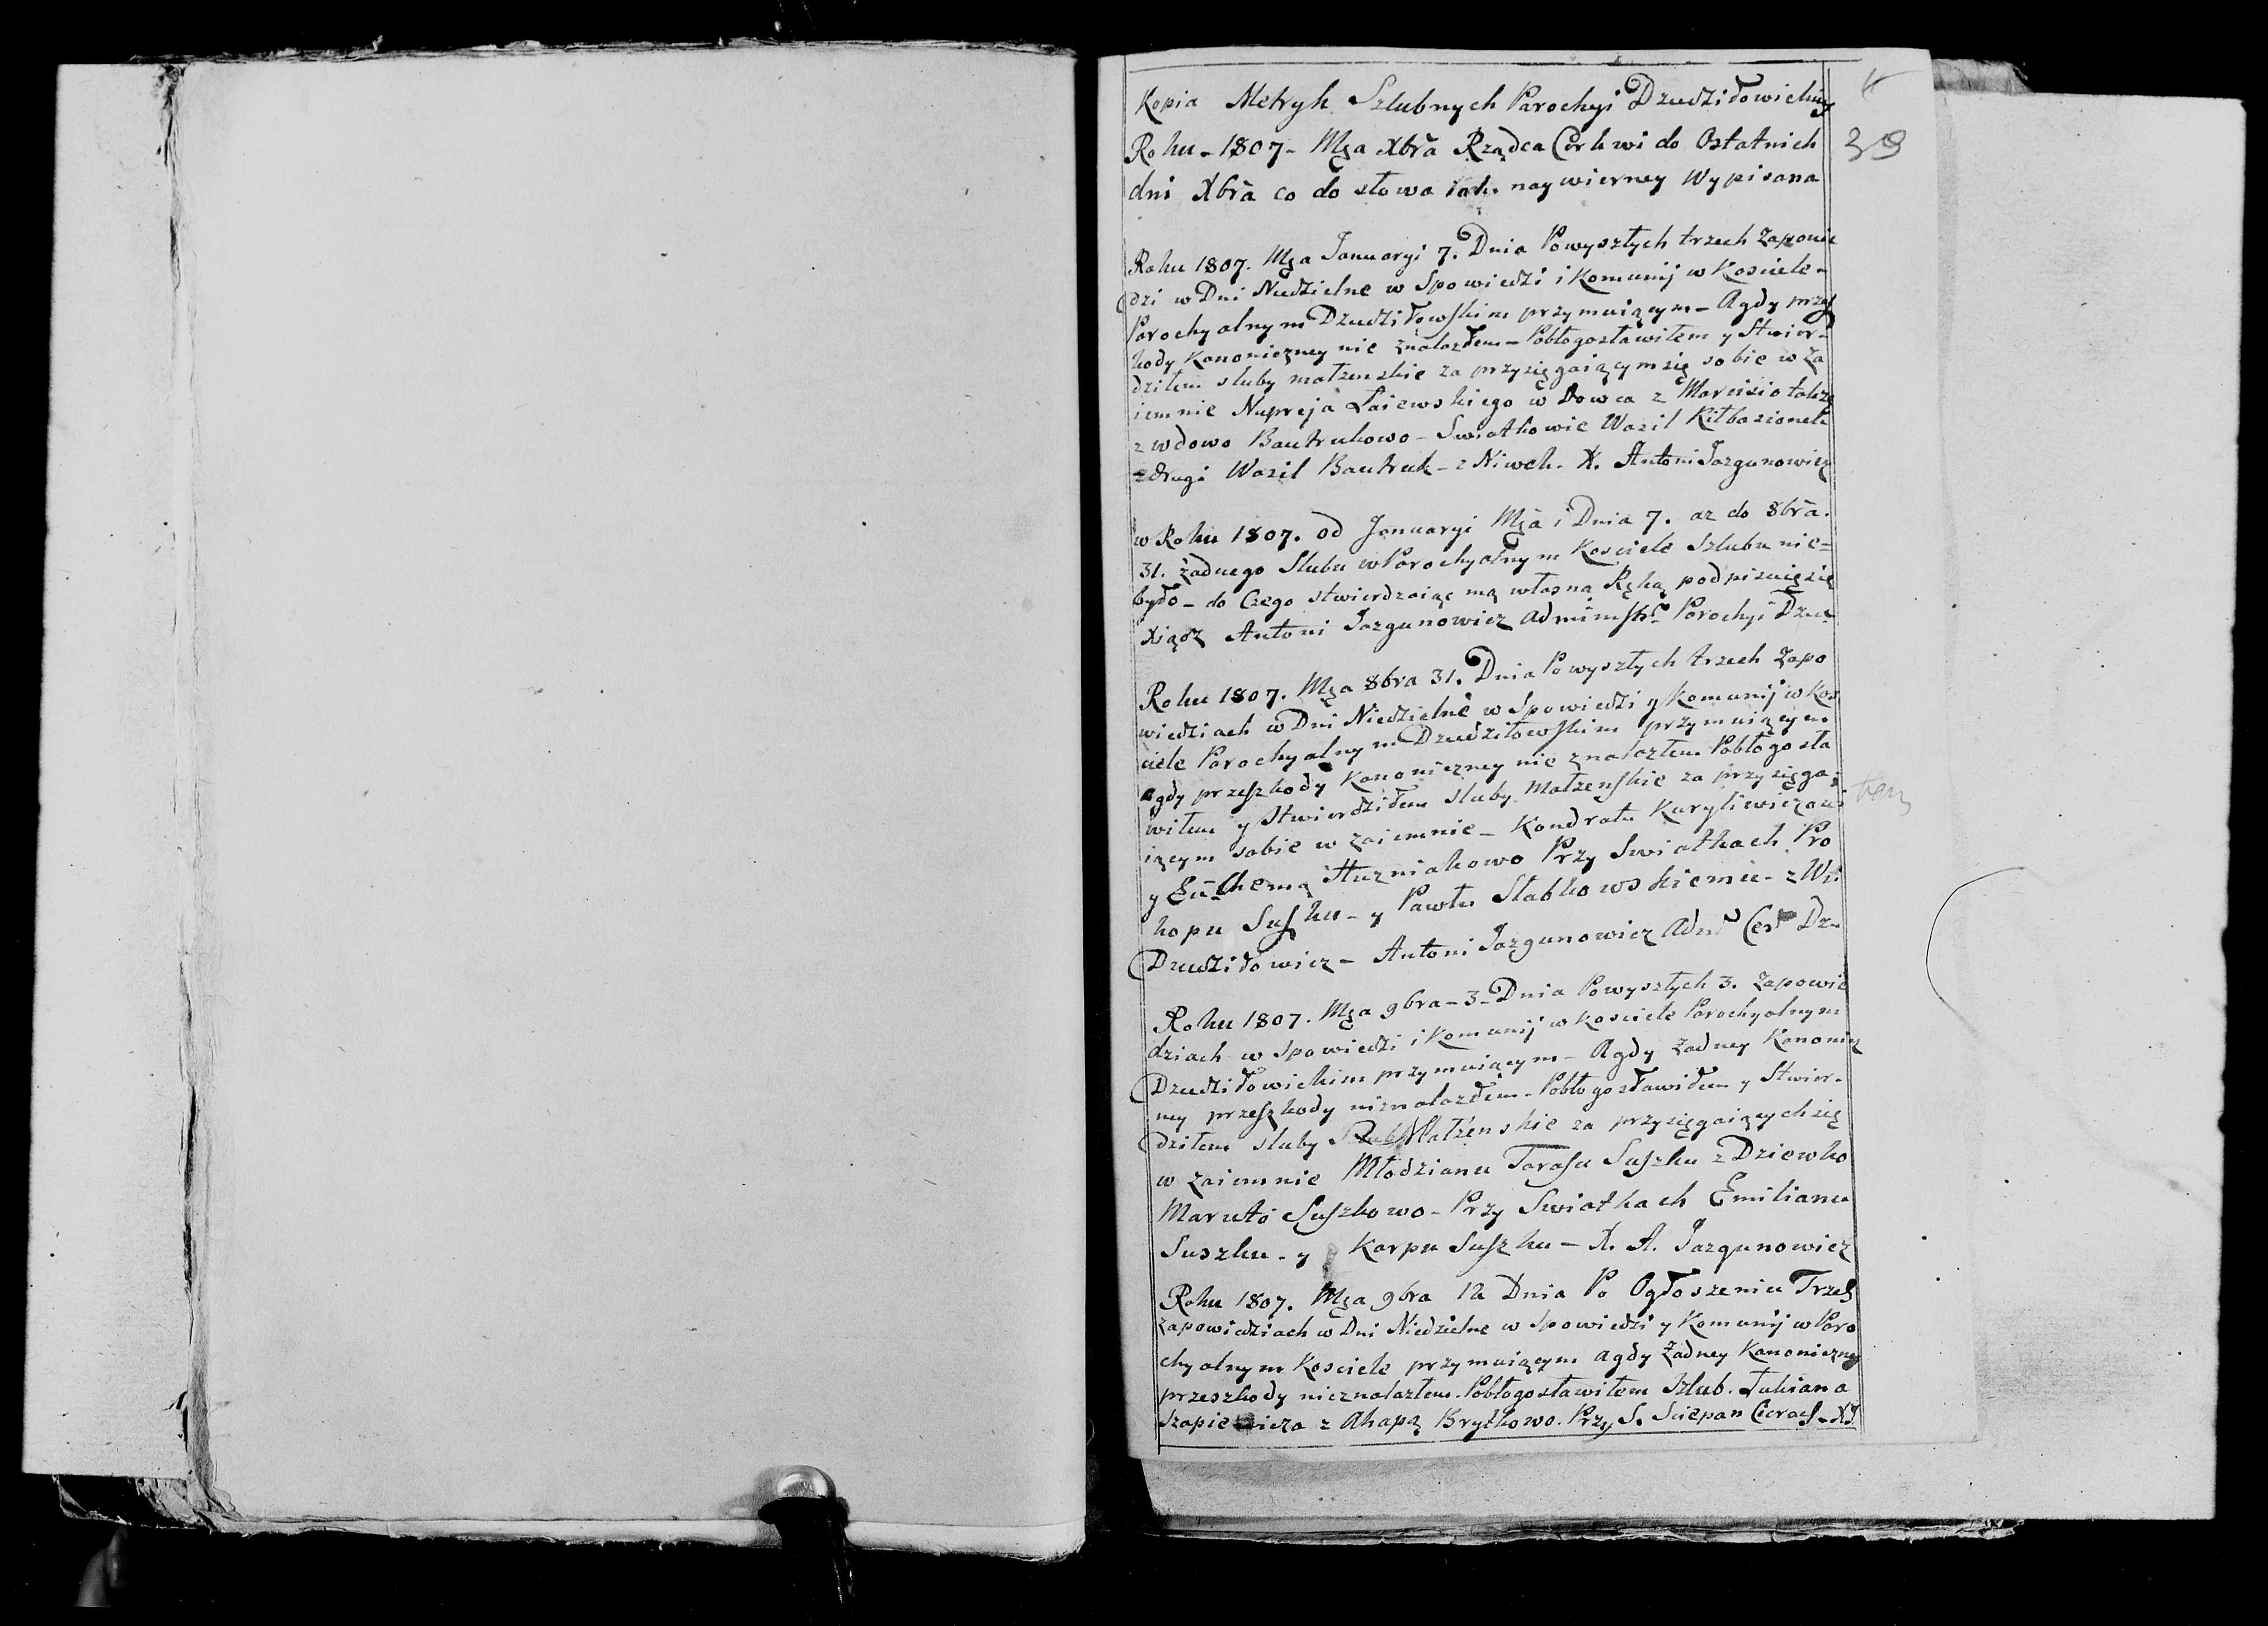 Kopia Metryk Szlubnych Parochyi Dzudziłowickiey
39
Roku - 1807 - Mca Xbra Rządca Cerkwi do Ostatnich
dni Xbra co do słowa iak naywierney Wypisana
Roku 1807. Mca Januaryi 7. Dnia Powyszłych trzech Zapowie
dzi w Dni Niedzielne w Spowiedzi i Komunij w Kosciele -
Parochyalnym Dzudziłowskim przymuiącym - Agdy przesz
kody Kanoniczney nie znalazłem - Pobłogosławiłem y Stwier-
dziłem sluby małzenskie za przysięgaiącym się sobie w Za
iemnie Nupreja Łaiewskiego w Dowca z Marcisio także
z wdowo Bautrukowo - Swiatkowie Wasil Kiłbasionek
drugi Wasil Bautruk - z Niwek. X. Antoni Jazgunowicz
w Roku 1807. od Januaryi Mca i Dnia 7. az do 8bra.
31. żadnego Slubu w Parochyalnym Kosciele Szlubu nie =
było - do Czego stwierdzaiąc mą własną Ręką podpisuię się
Xiądz Antoni Jazgunowicz Administr. Parochyi Dzud
Roku 1807. Mca 8bra 31. Dnia Powyszłych trzech Zapo
wiedziach w Dni Niedzielne w Spowiedzi y Komunij w Kos
ciele Parochyalnym Dzudziłowskim przymuiącym
agdy przeszkody Kanoniczney nie znalazłem Pobłogosła
wiłem y Stwierdziłem sluby Małzenskie za przysięga-
iącym sobie w zaiemnie - Kondratu Karyliwiczowi
y Huzniakowo Przy Swiatkach Pro
kopu Suszku - y Pawłu Słabkowskiemu - z Wsi
Dzudziłowicz - Antoni Jazgunowicz Adm Cer Dz
Roku 1807. Mca 9bra - 3 - Dnia Powyszłych 3. Zapowie
dziach w Spowiedzi i Komunij w Kosciele Parochyalnym
Dzudziłowickim przymuiącym - Agdy Żadney Kanonicz
ney przeszkody nieznalazłem - Pobłogosławiłem y Stwier-
dziłem sluby Małżenskie za przysięgaiących się
w zaiemnie Młodzianu Tarasu Suszku z Dziewko
Maruto Suszkowo - Przy Swiatkach Emilianu
Suszku - y Karpu Suszku - X. A. Jazgunowicz
Roku 1807. Mca 9bra 12 Dnia Po Ogłoszeniu Trzech
zapowiedziach w Dni Niedzielne w Spowiedzi y Komunij w Paro
chyalnym Kosciele przymuiącym agdy Żadney Kanoniczney
przeszkody nieznalazłem - Pobłogosławiłem Szlub. Łukiana
z Ahapą Bryłkowo. Przy S. Sciepan